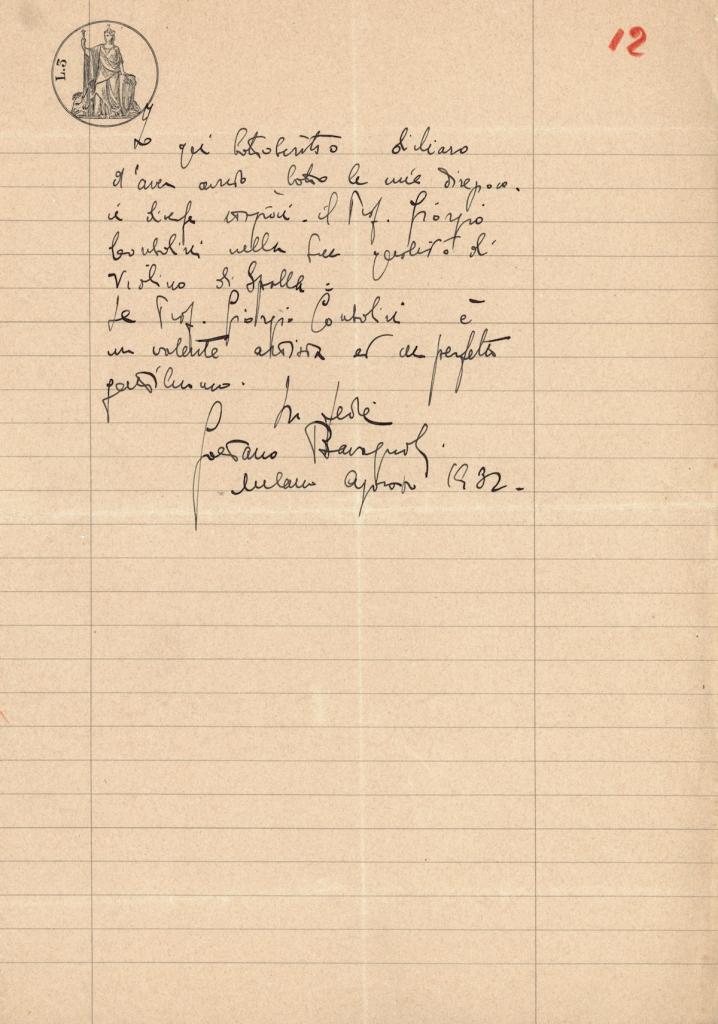 L.3
12
Io qui sottoscritto dichiaro
d'aver avuto sotto la mia direzio-
ne il Prof. Giorgio
Consolini nella sua qualità di
Violino di Spalla =
Il Prof. Giorgio Consolini è
un valente artista ed un perfetto
gentiluomo.
In fede
Gaetano Bavagnoli.
Milano Agosto 1932 -